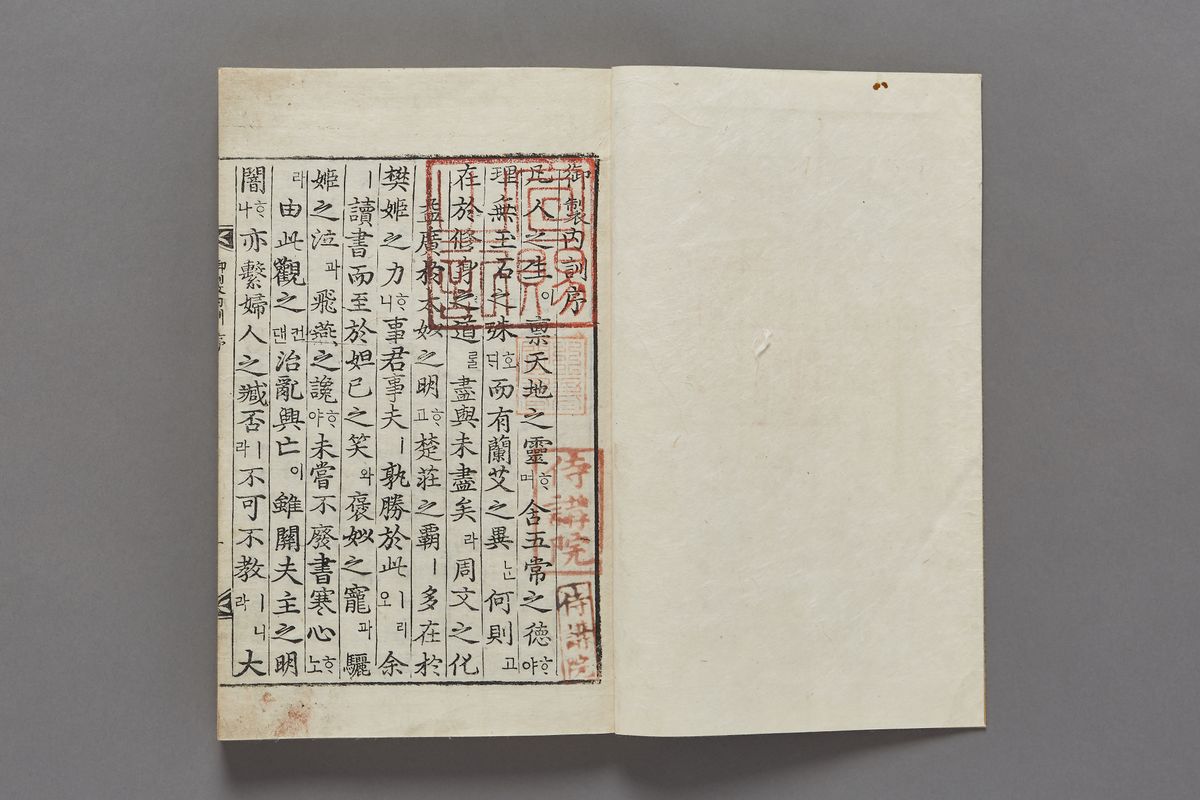 御製內訓序
凡人之生이禀天地之靈ᄒᆞ며含五常之德ᄒᆞ야
理無玉石之殊호ᄃᆡ而有蘭艾之異ᄂᆞᆫ何則고
在於修身之道ᄅᆞᆯ盡與未盡矣라周文之化
益廣於太姒之明ᄒᆞ고楚莊之霸ㅣ多在於
樊姬之力ᄒᆞ니事君事夫ㅣ孰勝於此ㅣ리오余
ㅣ讀書而至於妲己之笑와褒姒之寵과驪
姬之泣과飛燕之讒ᄒᆞ야未嘗不廢書寒心ᄒᆞ노
라由此觀之컨댄治亂興亡이雖關夫主之明
闇ᄒᆞ나亦繫婦人之臧否ㅣ라不可不教ㅣ니라大
侍講院
侍講院